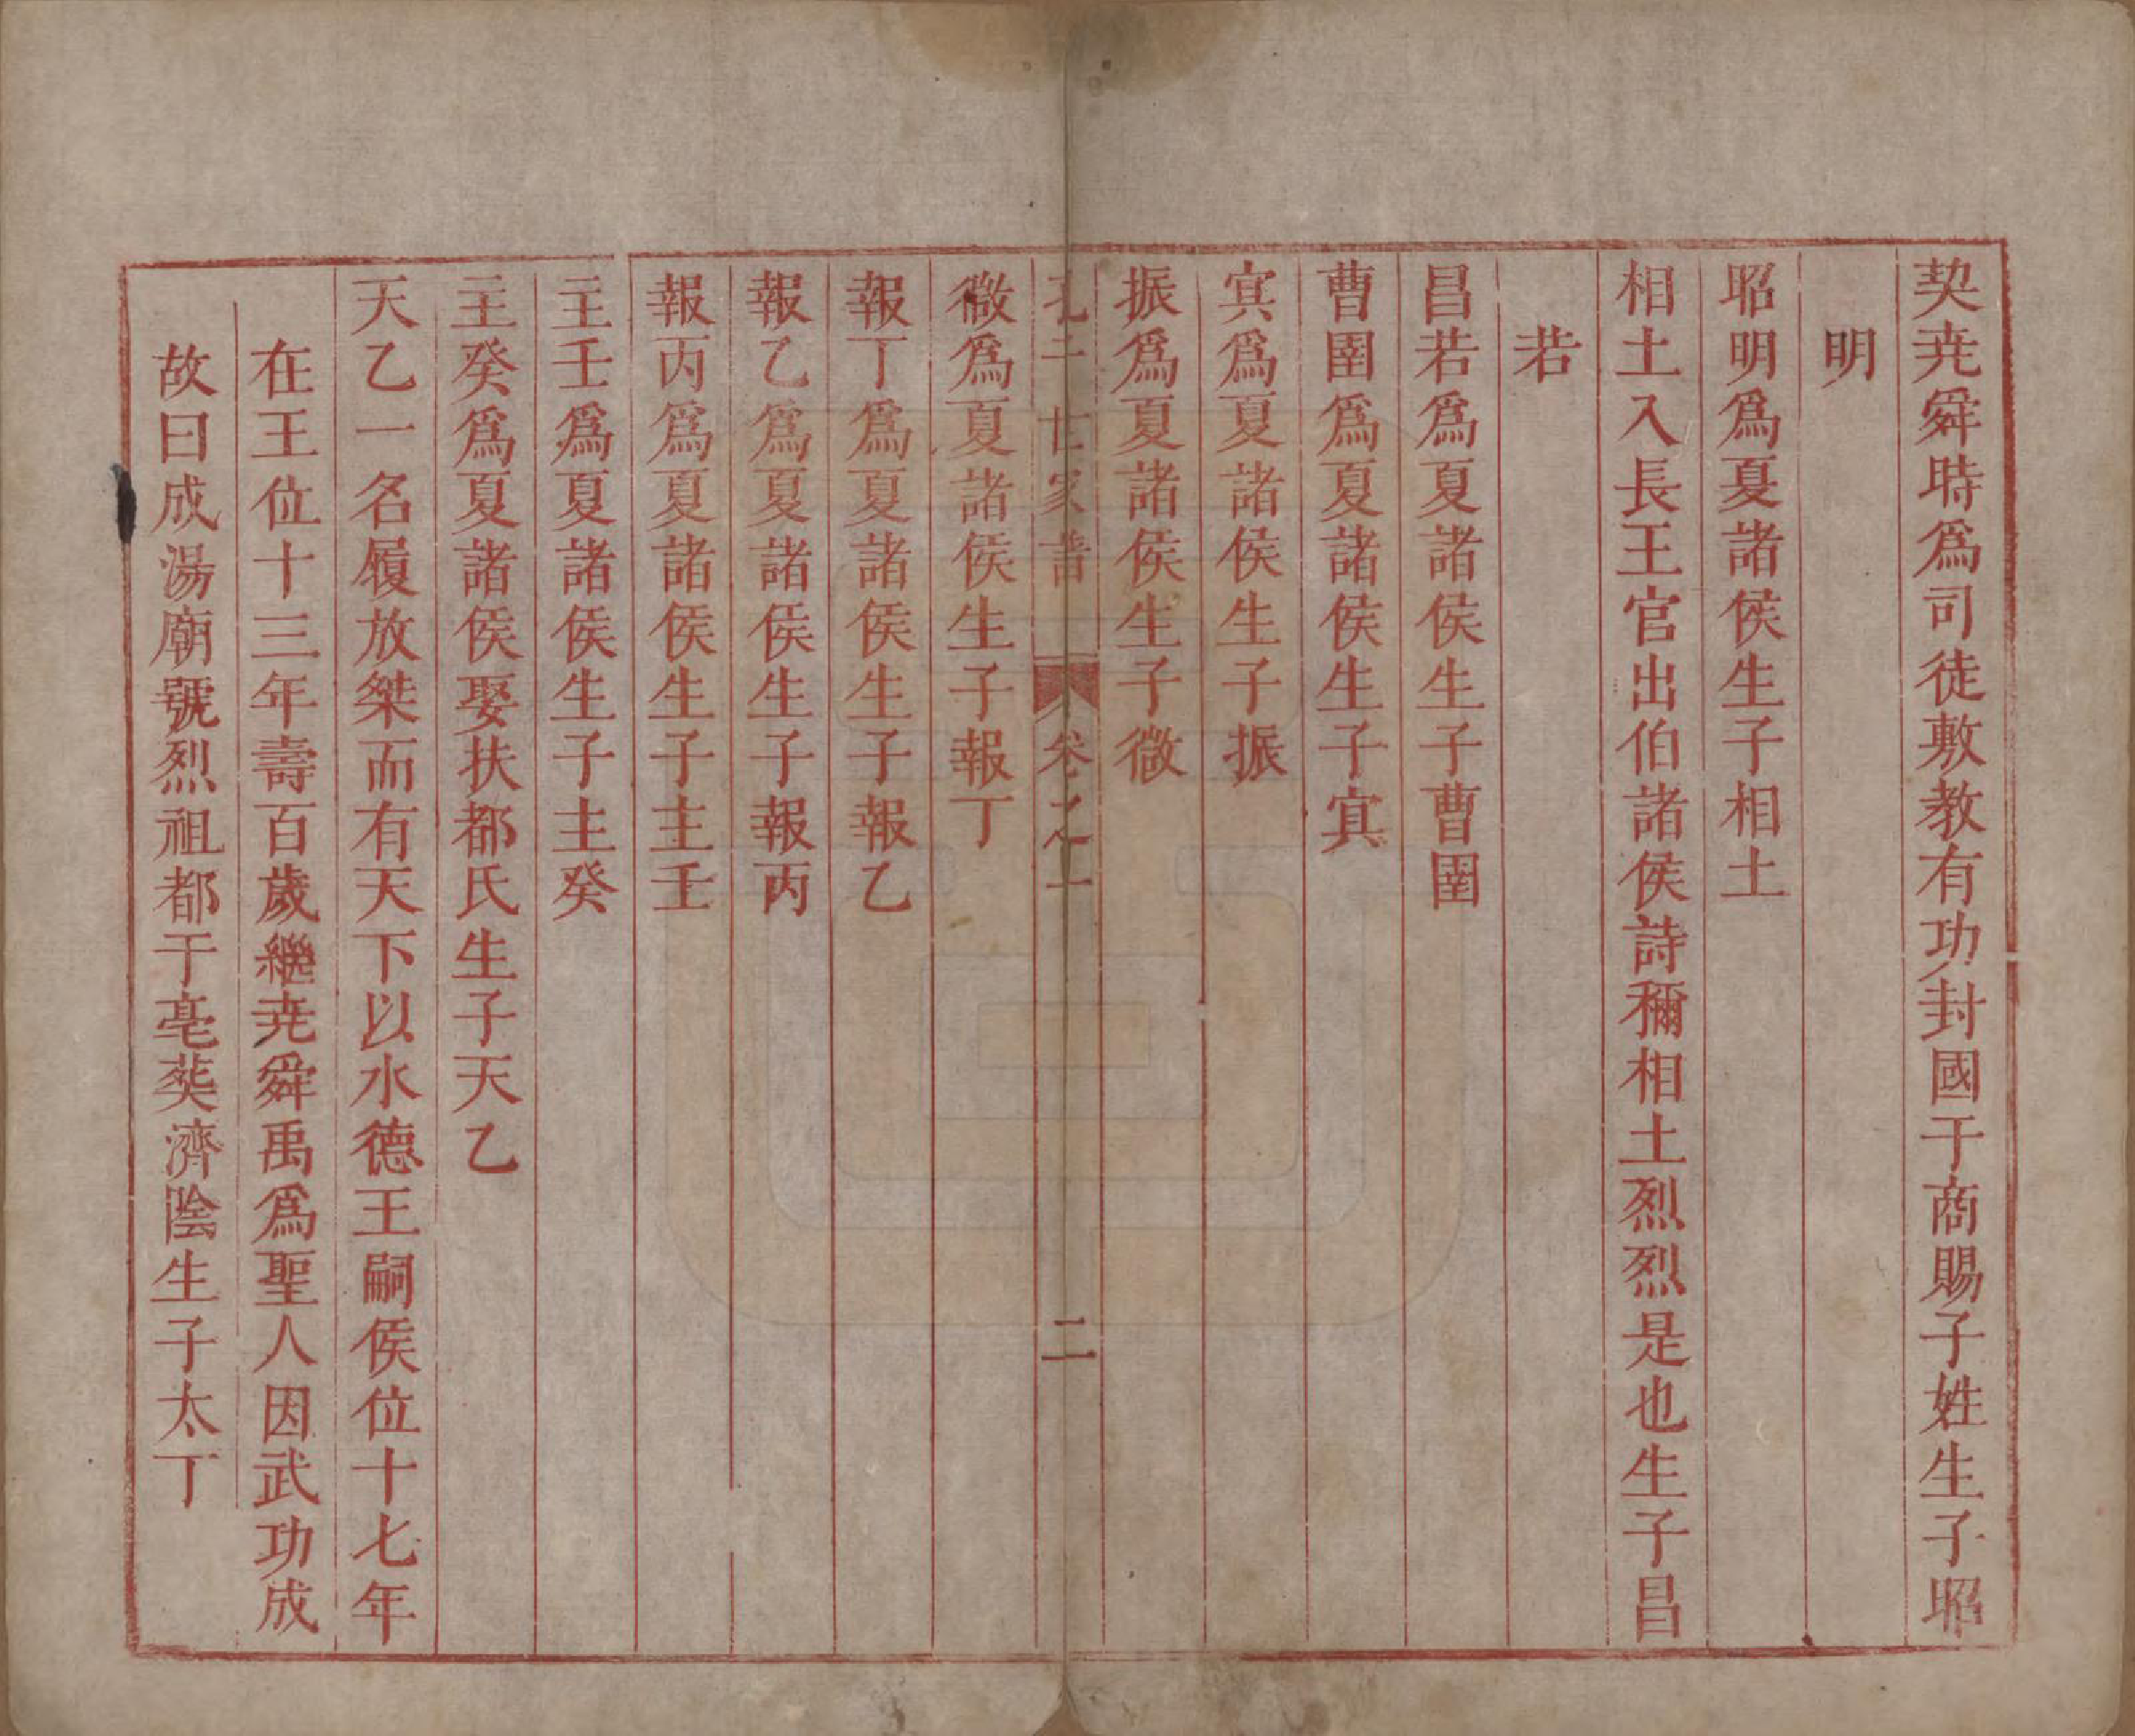 契堯舜時爲司徒敷教有功封國于商賜子姓生子昭
明
昭明爲夏諸侯生子相土
相土入長王官出伯諸侯詩稱相土烈烈是也生子昌
若
昌若爲夏諸侯生子曹圉
曹圉爲夏諸侯生子㝠
㝠爲夏諸侯生子振
振爲夏諸侯生子微
孔子世家譜 卷之一 二
微爲夏諸侯生子報丁
報丁爲夏諸侯生子報乙
報乙爲夏諸侯生子報丙
報丙爲夏諸侯生子主壬
主壬爲夏諸侯生子主癸
主癸爲夏諸侯娶扶都氏生子天乙
天乙一名履放桀而有天下以水德王嗣侯位十七年
在王位十三年壽百歲繼堯舜禹爲聖人因武功成
故曰成湯廟號烈祖都于亳葬濟陰生子太丁